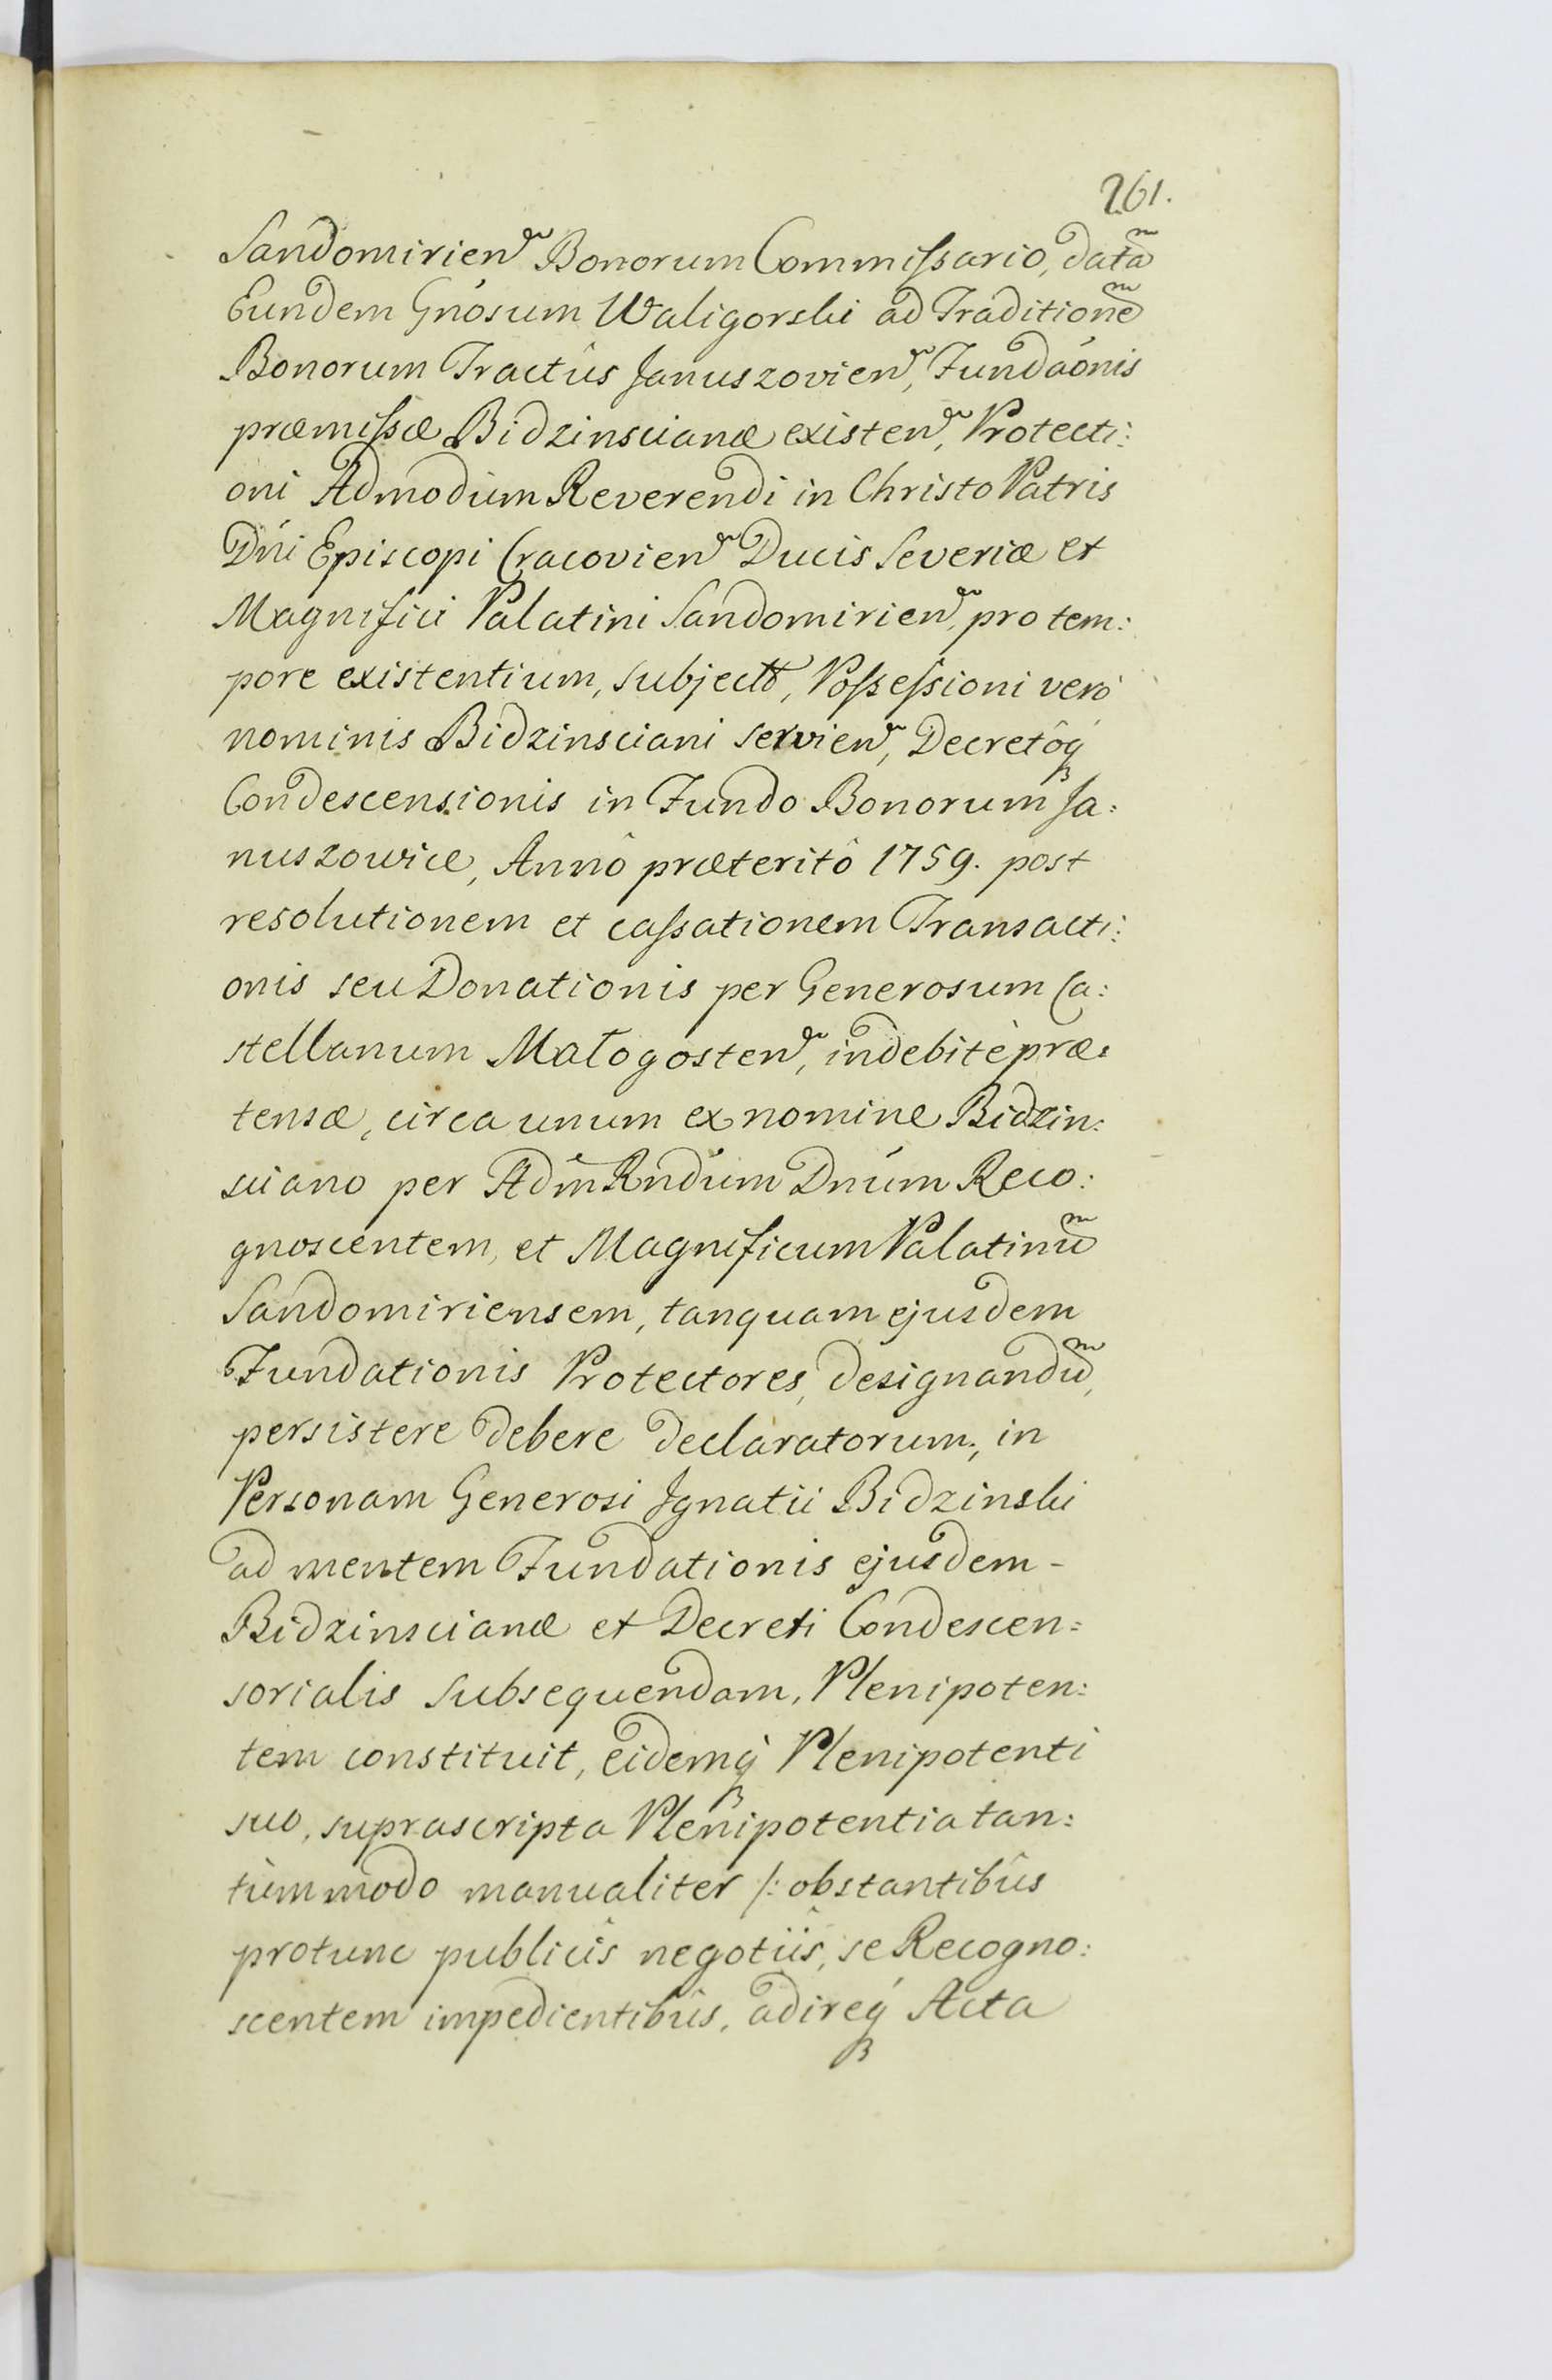 261.
Sandomirien̄ Bonorum Commiſsario, datã
Eundem Gnósum Waligorski ad Traditionẽ
Bonorum Tractûs Januszovien̄, Fundaónis
præmiſsæ Bidzinscianæ existen̄, Protecti:
oni Admodum Reverendi in Christo Patris
Dńi Episcopi Cracovien̄ Ducis Severiæ et
Magnifici Palatini Sandomirien̄, pro tem:
pore existentium, subject͠, Poſseſsioni verò
nominis Bidzinsciani servien̄, Decretôq́
Condescensionis in Fundo Bonorum Ja:
nuszowice, Annô præteritô 1759. post
resolutionem et caſsationem Transacti:
onis seu Donationis per Generosum Ca:
stellanum Małogosten̄, indebitè præ:
tensæ, circa unum ex nomine Bidzin:
sciano per Adm̃ Rndúm Dnúm Reco:
gnoscentem, et Magnificum Palatinũ
Sandomiriensem, tanquam ejusdem
Fundationis Protectores, designandũ,
persistere debere declaratorum, in
Personam Generosi Ignatii Bidzinski
ad mentem Fundationis ejusdem -
Bidzinscianæ et Decreti Condescen:
sorialis subsequendam, Plenipoten:
tem constituit, eidemq́ Plenipotenti
suo, suprascripta Plenipotentia tan:
tùmmodo manualiter /: obstantibûs
protunc publicîs negotiîs, se Recogno:
scentem impedientibûs, adireq́ Acta